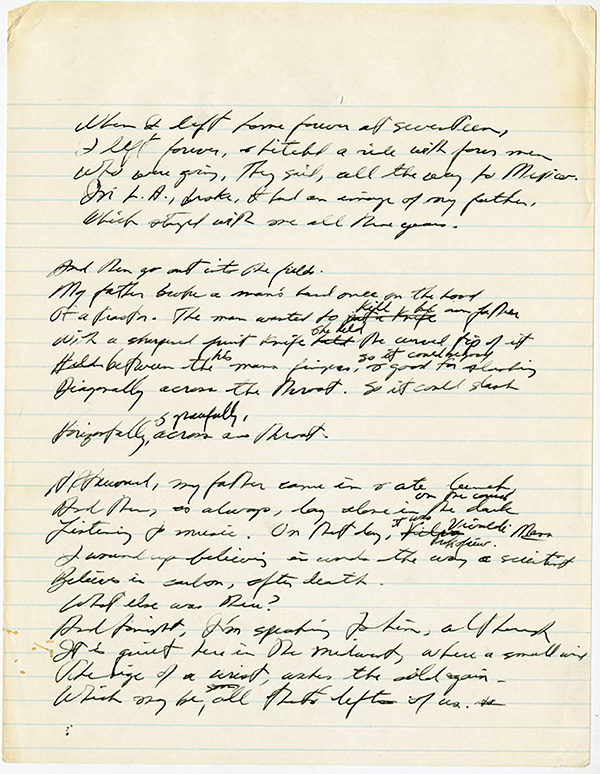 When I left home forever at seventeen,
I left forever, & hitched a ride with four men
Who were going, they said, all the way to Mexico.
In L.A., broke, I had an image of my father,
Which stayed with me all these years.
And then go out into the fields.
My father broke a man's hand once on the hood
kill his
Of a tractor. The man wanted to put a knife own father
he held
With a sharpened fruit knife held the curved tip of it
his so it could
Held between the mans fingers, & good for slashing
Diagonally across the throat. So it could slash
& gracefully,
Horizontally, across a throat.
Afterward, my father came in & ate lunch,
on the couch
And then, as always, lay alone in the dark
it was Vivaldi
Listening to music. On that day,
I wound up believing in words the way a scientist
Believes in carbon, after death.
What else was there?
And tonight, I'm speaking to him, although
It is quiet here in the midwest, where a small wind
The size of a wrist, wakes the cold again—
Which may be, all that's left of us.